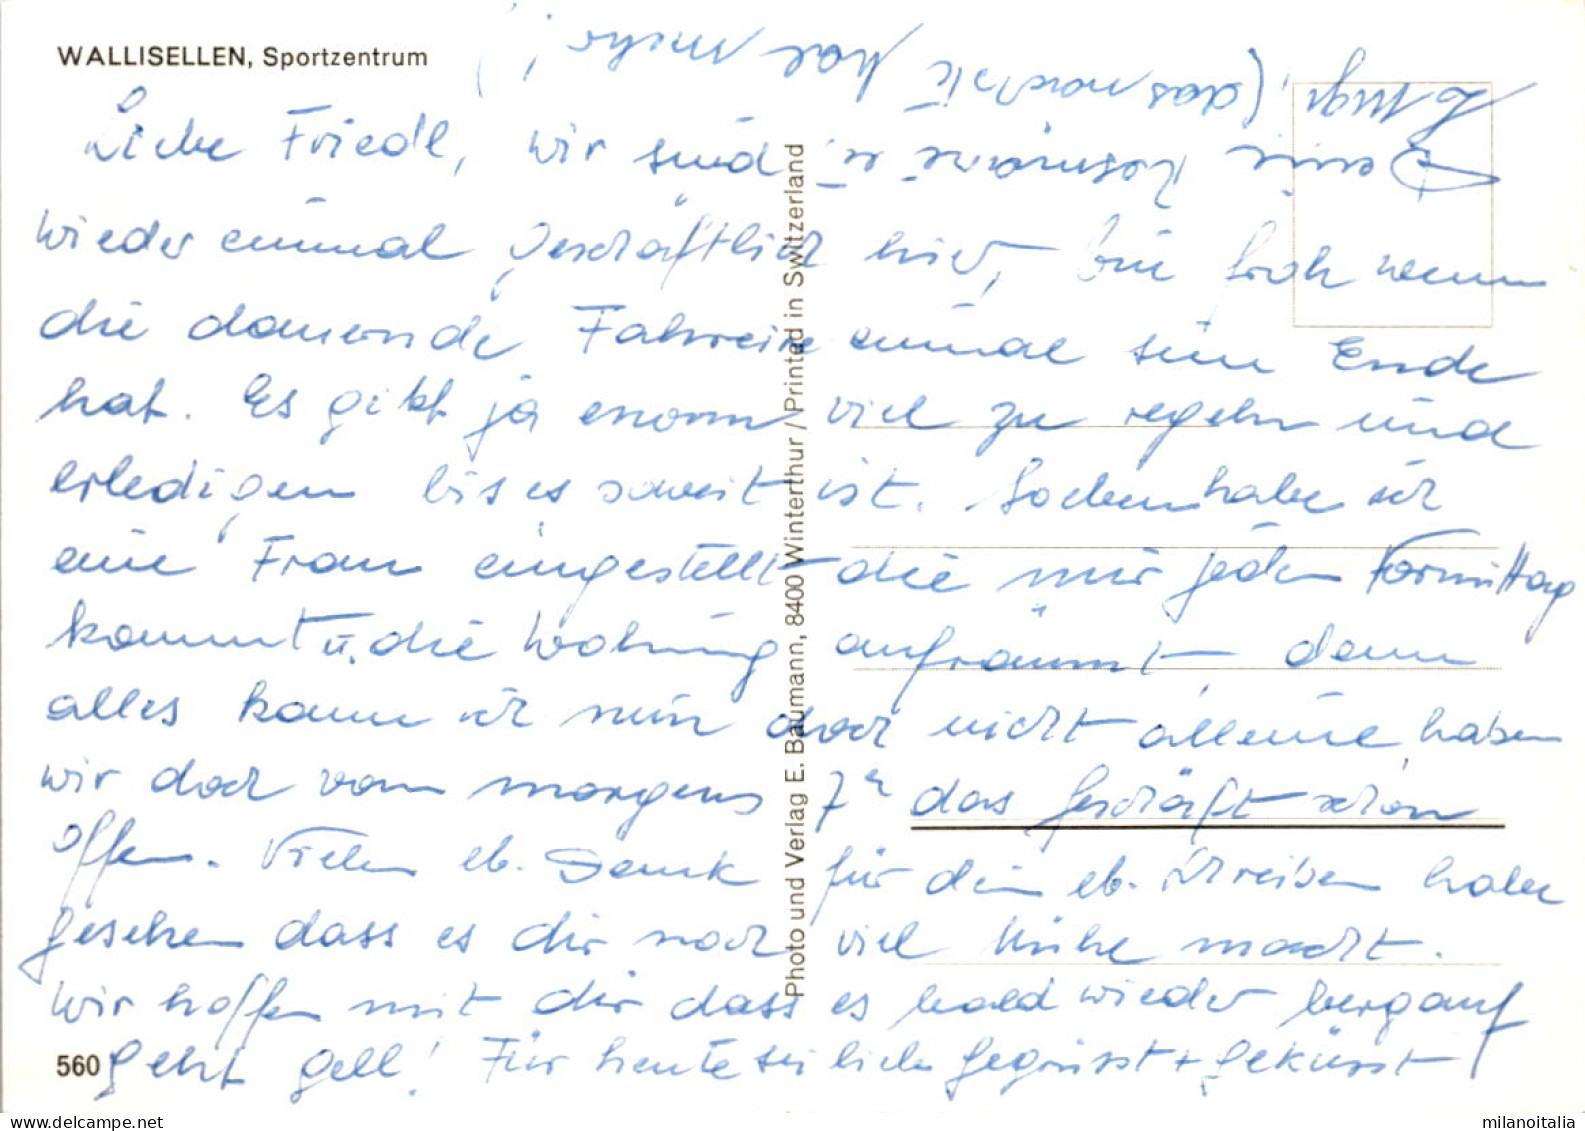 WALLISELLEN, Sportzentrum
Liebe Friedl, wir sind
wieder einmal geschäftlich hier, bin froh wenn
die dauernde Fahrerei einmal sein Ende
hat. Es gibt ja enorm viel zu regeln und
erledigen bis es soweit ist. Soeben habe ich
eine Frau eingestellt die mir jeden Vormittag
kommt u. die Wohnung aufräumt, denn
alles kann ich nun doch nicht alleine, haben
wir doch von morgens 7 das Geschäft schon
offen. Vielen lb. Dank für dein lb. Schreiben habe
gesehen dass es dir noch viel Mühe macht.
Wir hoffen mit dir dass es bald wieder bergauf
geht gell! Für heute sei lieb gegrüsst + geküsst
Deine Rosmarie
(das nächste Mal mehr!)
Photo und Verlag E. Baumann, 8400 Winterthur / Printed in Switzerland
560
milanoitalia